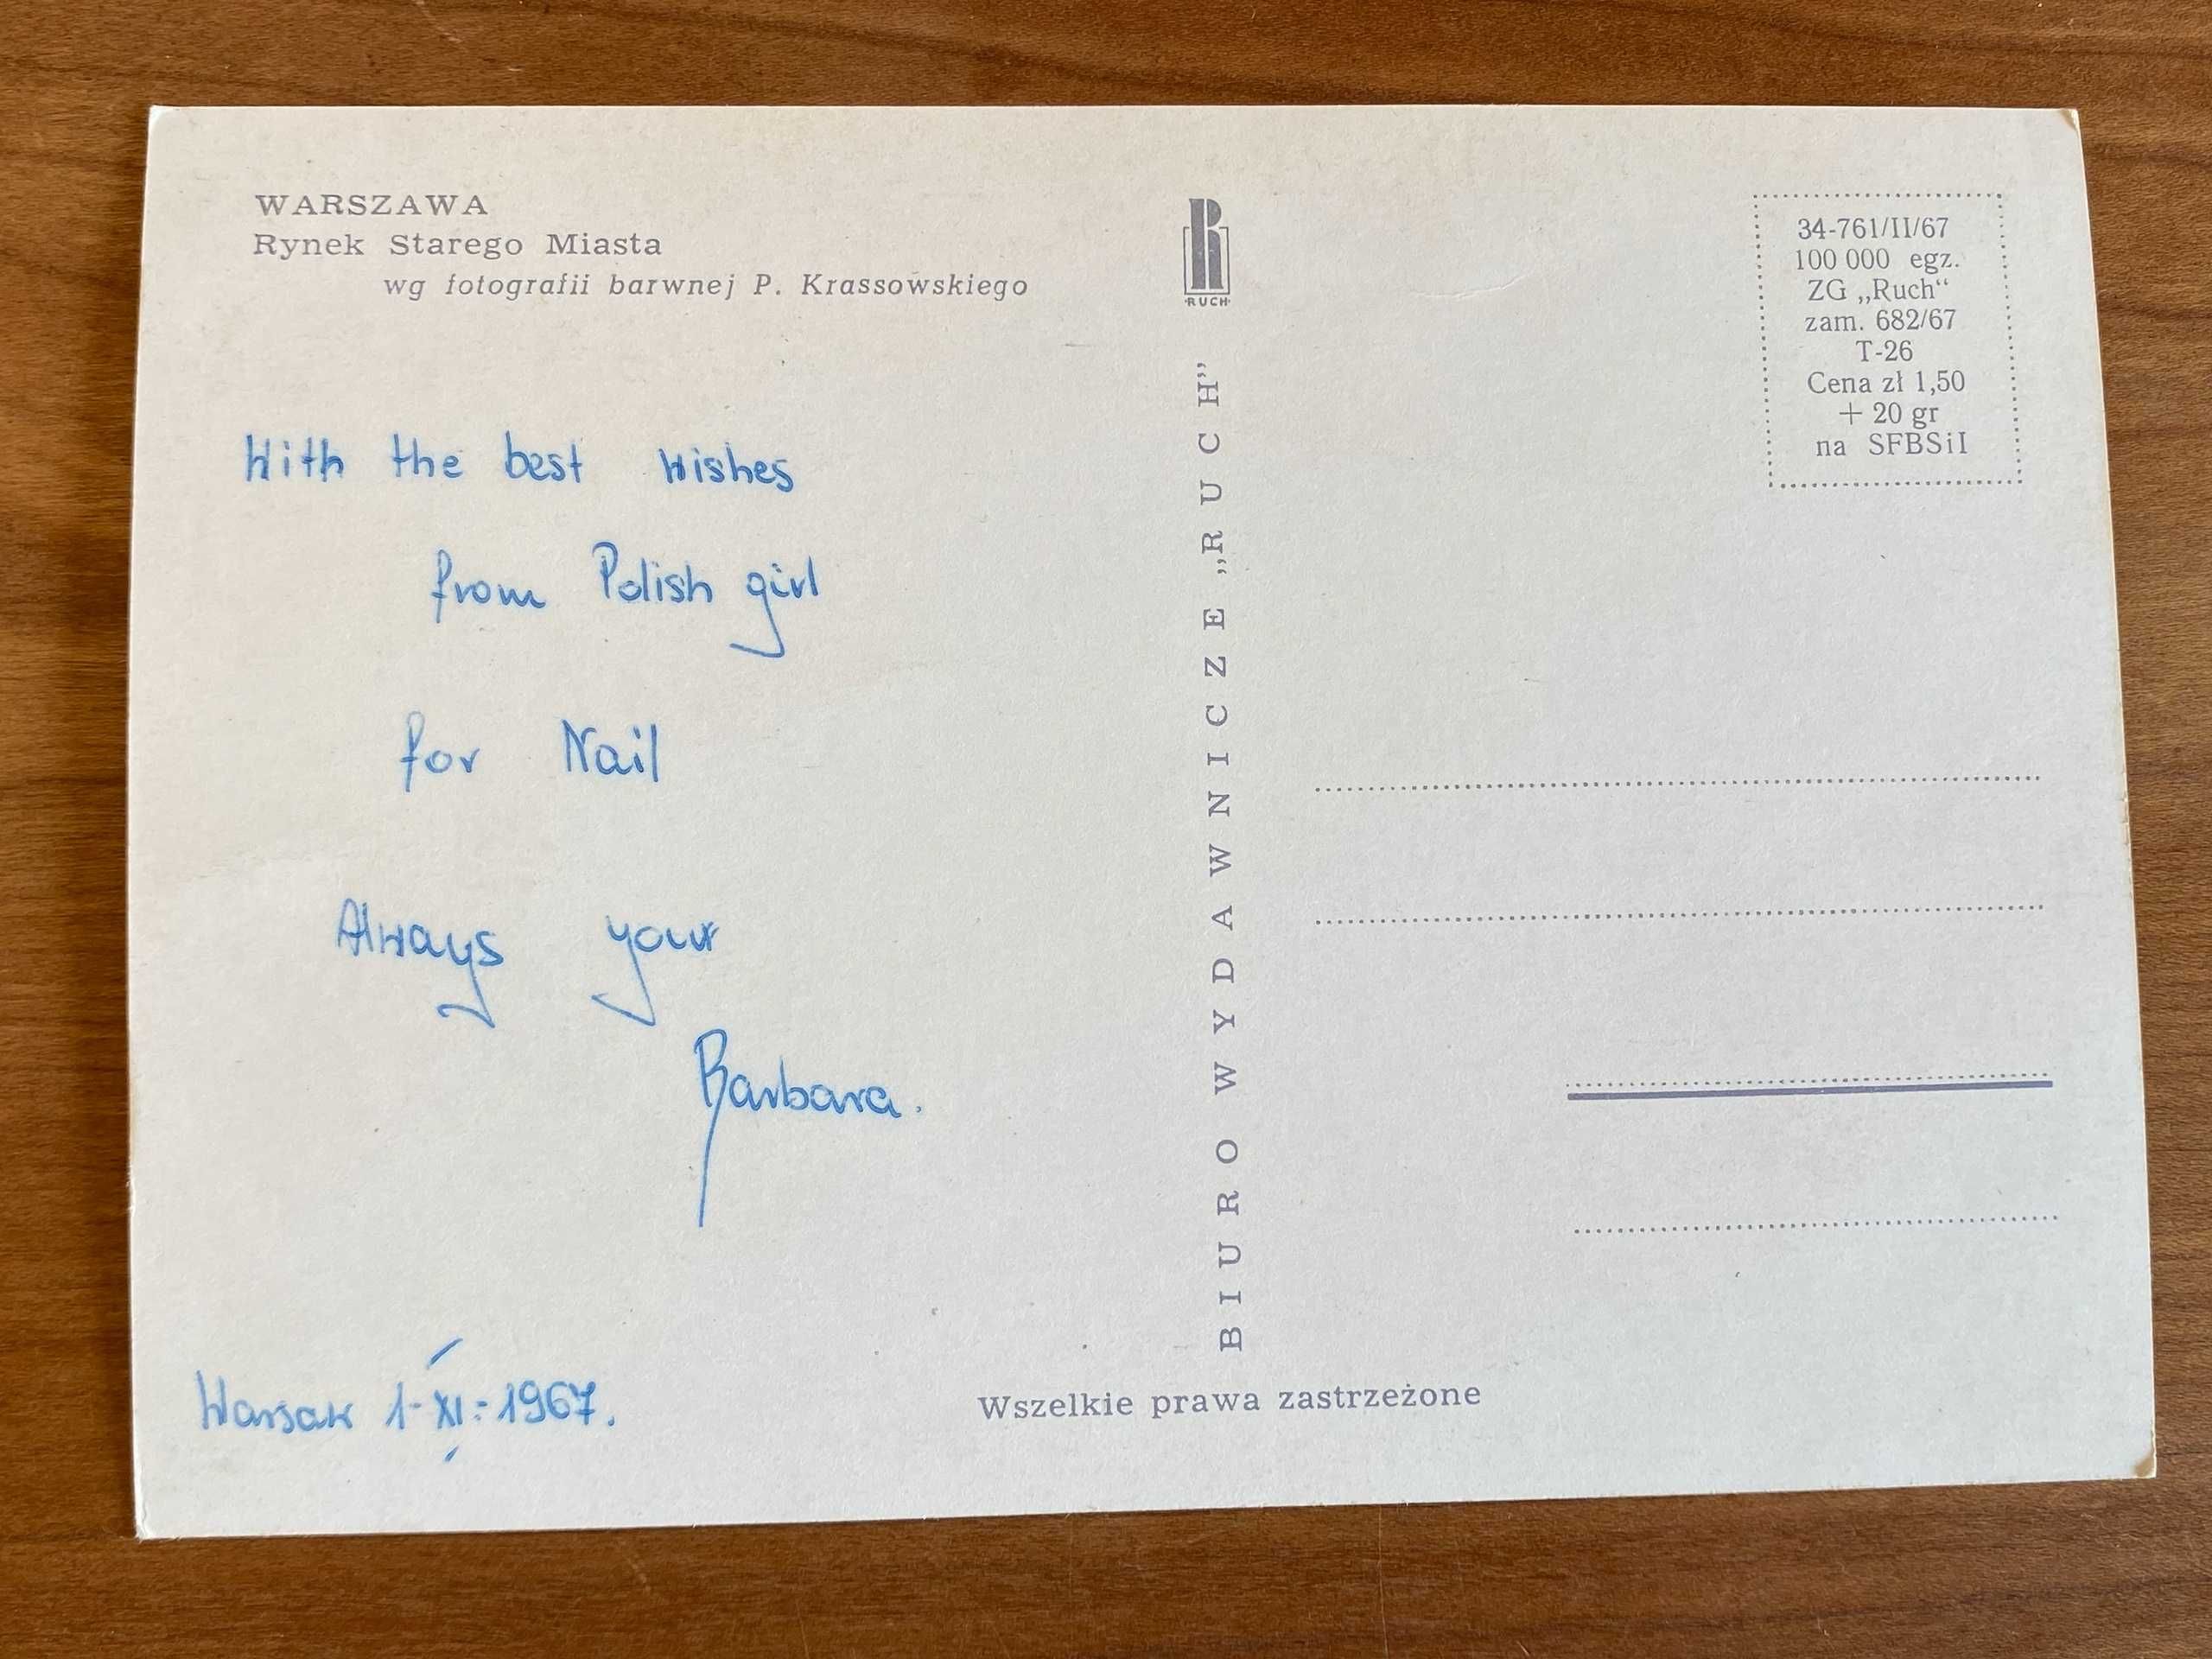 WARSZAWA
Rynek Starego Miasta
wg fotografii barwnej P. Krassowskiego
With the best wishes
from Polish girl
for Nail
Always your
Barbara.
Warsaw 1-XI-1967.
RUCH
BIURO WYDAWNICZE „RUCH”
Wszelkie prawa zastrzeżone
34-761/II/67
100 000 egz.
ZG „Ruch“
zam. 682/67
T-26
Cena zł 1,50
+ 20 gr
na SFBSiI